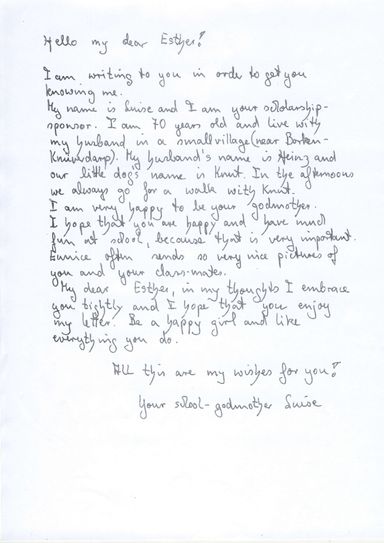 Hello my dear Esther!
I am writing to you in order to get you
knowing me.
My name is Luise and I am your scholarship-
sponsor. I am 70 years old and live with
my husband in a small village (near Borken-
). My husband's name is Heinz and
our little dog's name is Knut. In the afternoons
we always go for a walk with Knut.
I am very happy to be your godmother.
I hope that you are happy and have much
fun at school, because that is very important.
Eunice often sends so very nice pictures of
you and your class-mates.
My dear Esther, in my thoughts I embrace
you tightly and I hope that you enjoy
my letter. Be a happy girl and like
everything you do.
All this are my wishes for you!
Your school-godmother Luise